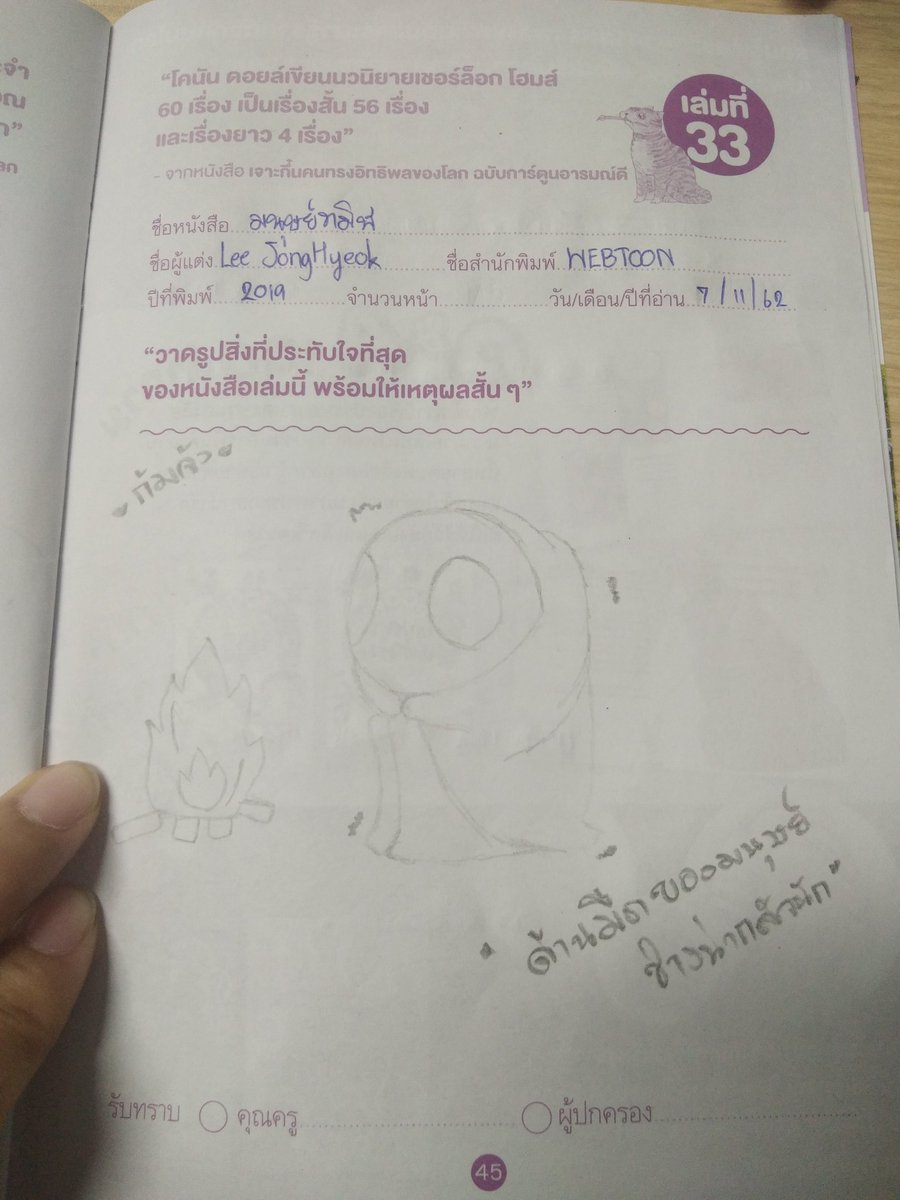 ะจำ
วณ
ก”
ลก
“โคนัน ดอยล์เขียนนวนิยายเชอร์ล็อก โฮมส์
60 เรื่อง เป็นเรื่องสั้น 56 เรื่อง
และเรื่องยาว 4 เรื่อง”
- จากหนังสือ เจาะกึ๋นคนทรงอิทธิพลของโลก ฉบับการ์ตูนอารมณ์ดี
เล่มที่
33
ชื่อหนังสือ มนุษย์ทมิฬ
ชื่อผู้แต่ง Lee JongHyeok ชื่อสำนักพิมพ์ WEBTOON
ปีที่พิมพ์ 2019 จำนวนหน้า วัน/เดือน/ปีที่อ่าน 7/11/62
“วาดรูปสิ่งที่ประทับใจที่สุด
ของหนังสือเล่มนี้ พร้อมให้เหตุผลสั้น ๆ”
"ด้านมืดของมนุษย์
ช่างน่ากลัวนัก"
รับทราบ คุณครู ผู้ปกครอง
45